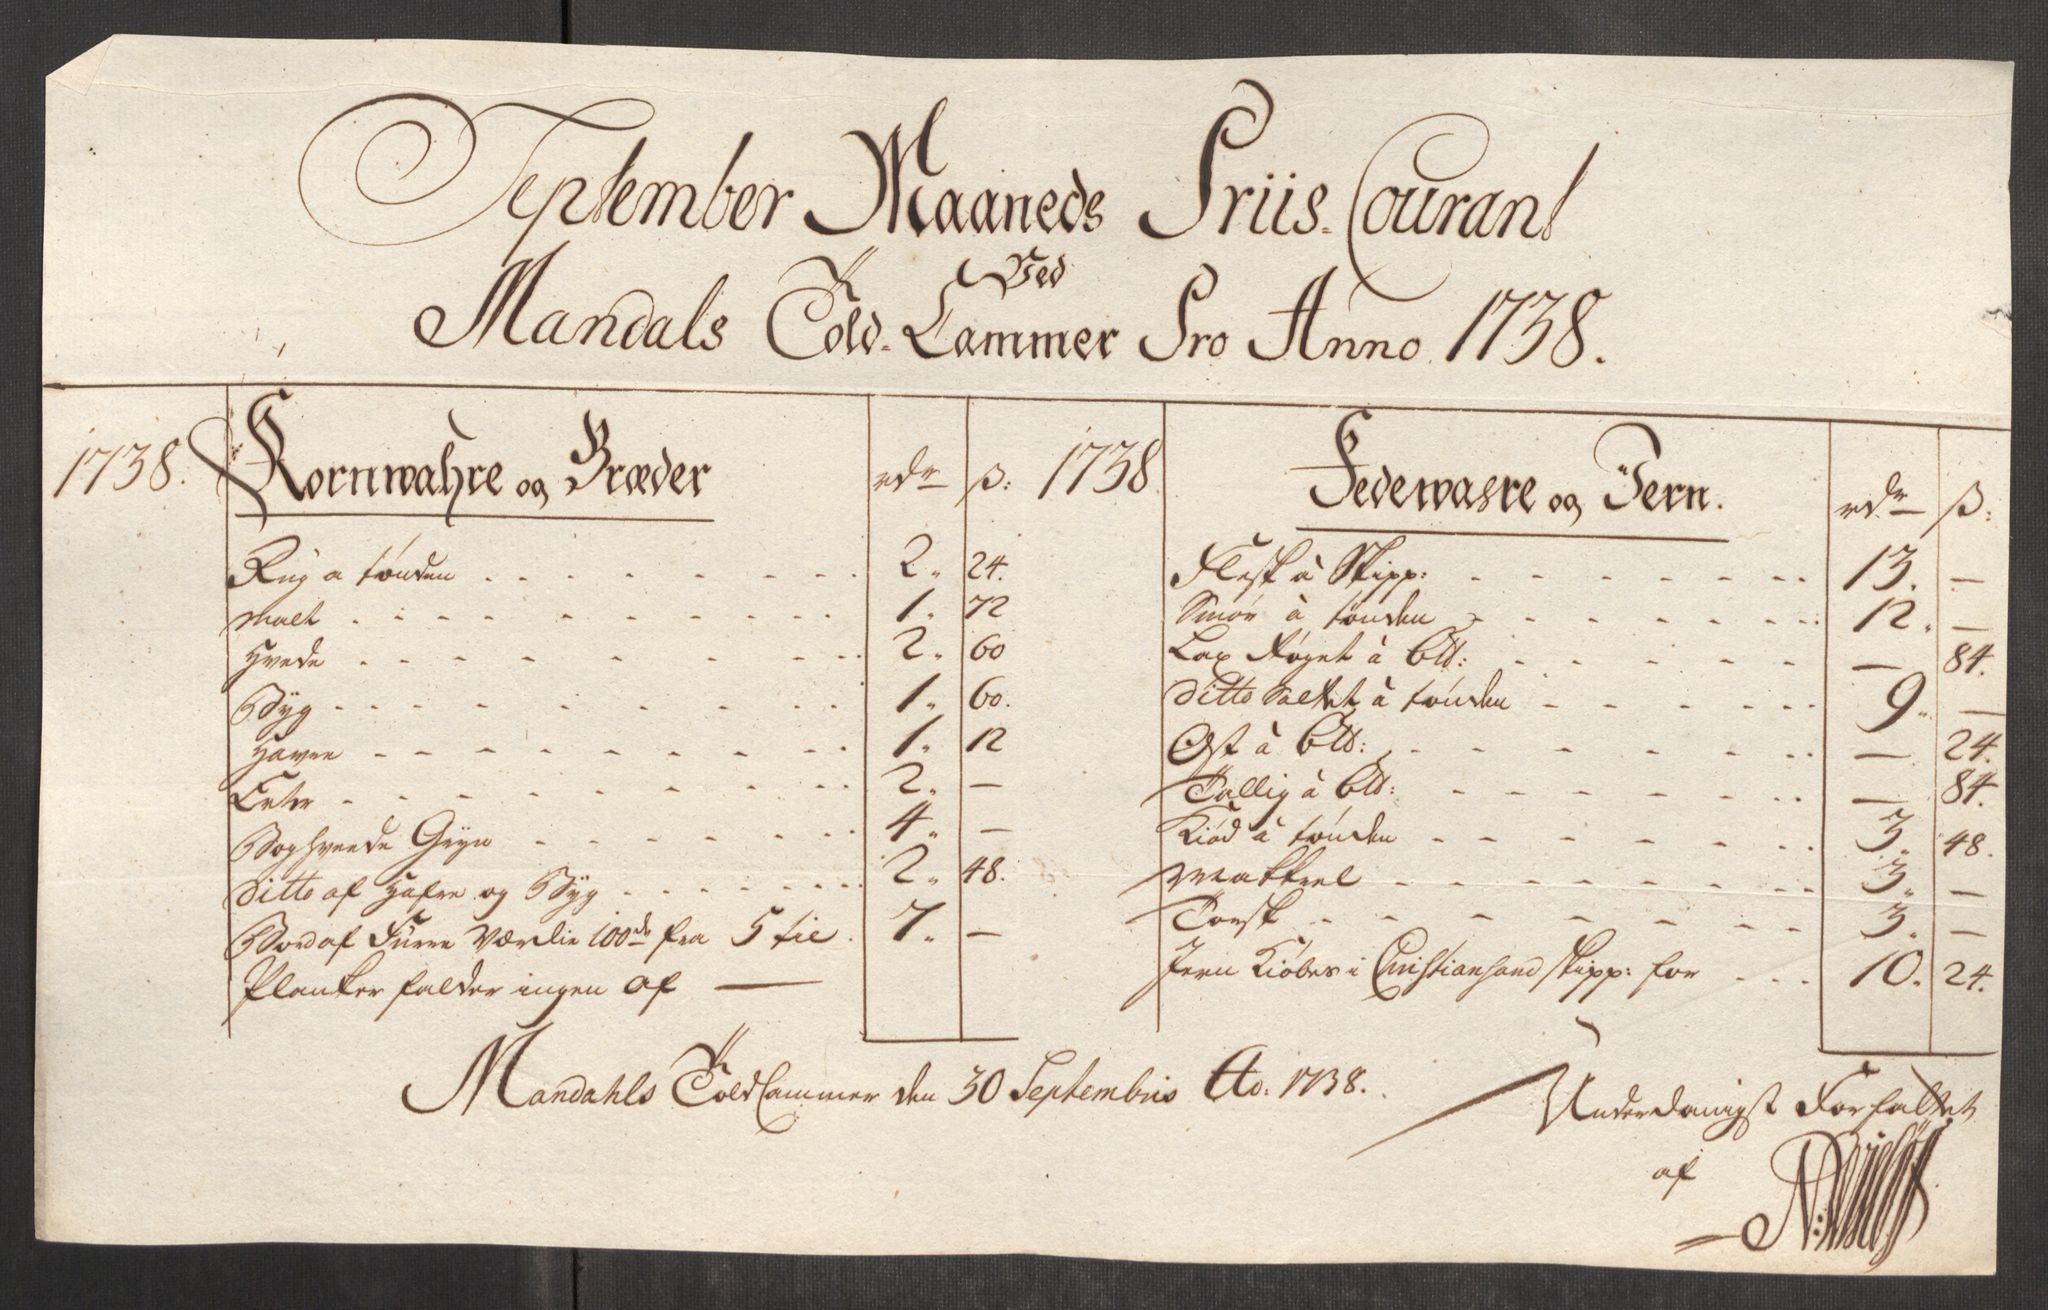 September Maaneds Priis-Courant
Ved
Mandals Told-Cammer Pro Anno 1738.
1738. Kornwahre og Bræder rdr ß:
Rug a tønden 2. 24.
malt 1. 72
Hvede 2. 60
Byg 1. 60.
Havre 1. 12
Erter 2. —
Boghveede Gryn 4. —
Ditto af Hafre og Byg 2. 48.
Bord af Furre Værdie 100de fra 5 tie 7. —
Planker falder ingen af —
1738 Fedewahre og Jern. rdr ß:
Flesk à Skipp: 13. —
Smør à tønden 12. —
Lax Røget à Bld: — 84.
Ditto Saltet à tønden 9. —
Ost à Bld: — 24.
Tallig à Bld: — 84.
Kiød à tønden 3. 48.
Makkrel 3. —
Torsk 3. —
Jern Kiøbes i Christiansand skipp: for 10. 24.
Mandahls Told Cammer den 30 Septembris Ao: 1738.
Underdanigst Forfattet
af